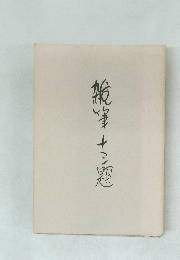 雑筆十二題